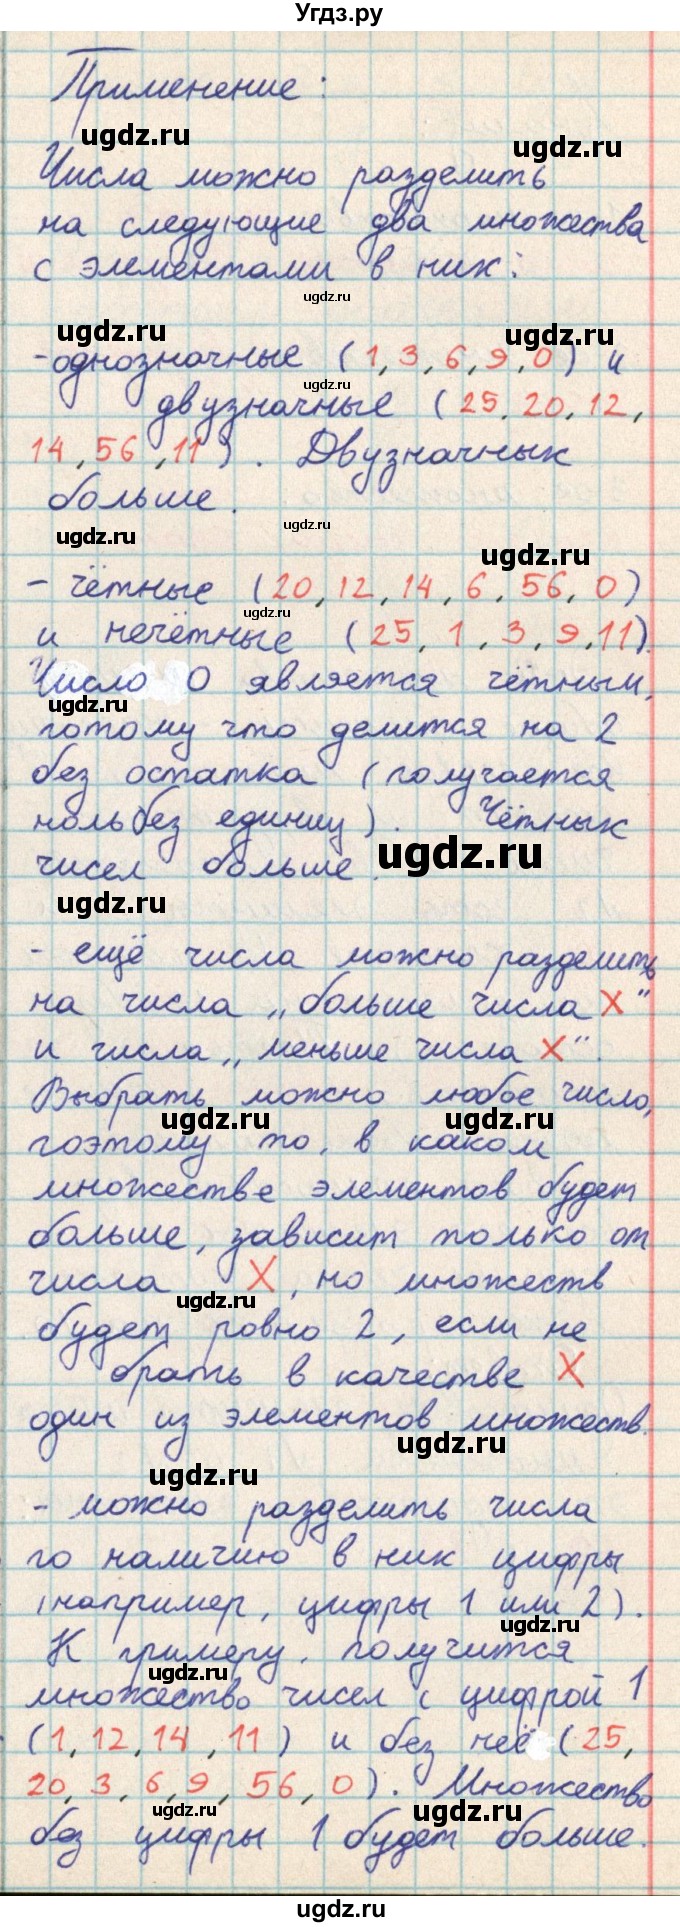 Угдз.ру
Применение:
ugdz.ru ugdz.ru
Числа можно разделить
на следующие два множества
с элементами в них:
ugdz.ru
ugdz.ru ugdz.ru
- однозначные (1, 3, 6, 9, 0) и
ugdz.ru
двузначные (25, 20, 12,
14, 56, 11). Двузначных
больше.
ugdz.ru ugdz.ru
ugdz.ru
- чётные (20, 12, 14, 6, 56, 0)
ugdz.ru
и нечётные (25, 1, 3, 9, 11).
Число 0 является чётным,
ugdz.ru
потому что делится на 2
без остатка (получается
ноль без единиц). Чётных
чисел больше.
ugdz.ru
ugdz.ru
- ещё числа можно разделить
на числа „больше числа X"
и числа „меньше числа X".
Выбрать можно любое число,
ugdz.ru ugdz.ru
поэтому то, в каком
множестве элементов будет
больше, зависит только от
числа X, но множеств
ugdz.ru
будет ровно 2, если не
брать в качестве X
один из элементов множеств.
ugdz.ru
ugdz.ru
- можно разделить числа
по наличию в них цифры
(например, цифры 1 или 2).
ugdz.ru
К примеру, получится
ugdz.ru
множество чисел с цифрой 1
(1, 12, 14, 11) и без неё (25,
20, 3, 6, 9, 56, 0). Множество
ugdz.ru ugdz.ru
без цифры 1 будет больше.
ugdz.ru